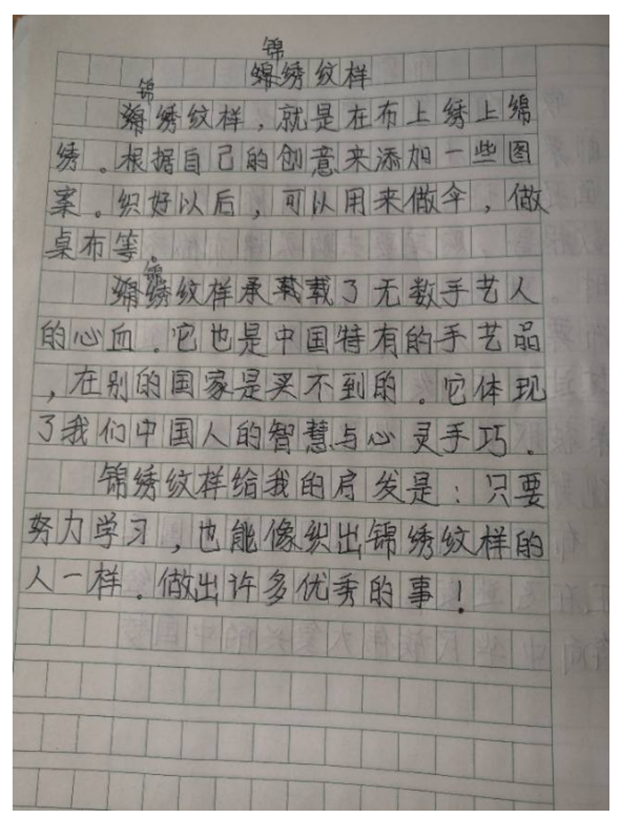 锦绣纹样
锦绣纹样，就是在布上绣上绵
绣。根据自己的创意来添加一些图
案。织好以后，可以用来做伞，做
桌布等。
锦绣纹样承载了无数手艺人
的心血。它也是中国特有的手艺品
，在别的国家是买不到的。它体现
了我们中国人的智慧与心灵手巧。
锦绣纹样给我的启发是：只要
努力学习，也能像织出锦绣纹样的
人一样。做出许多优秀的事！